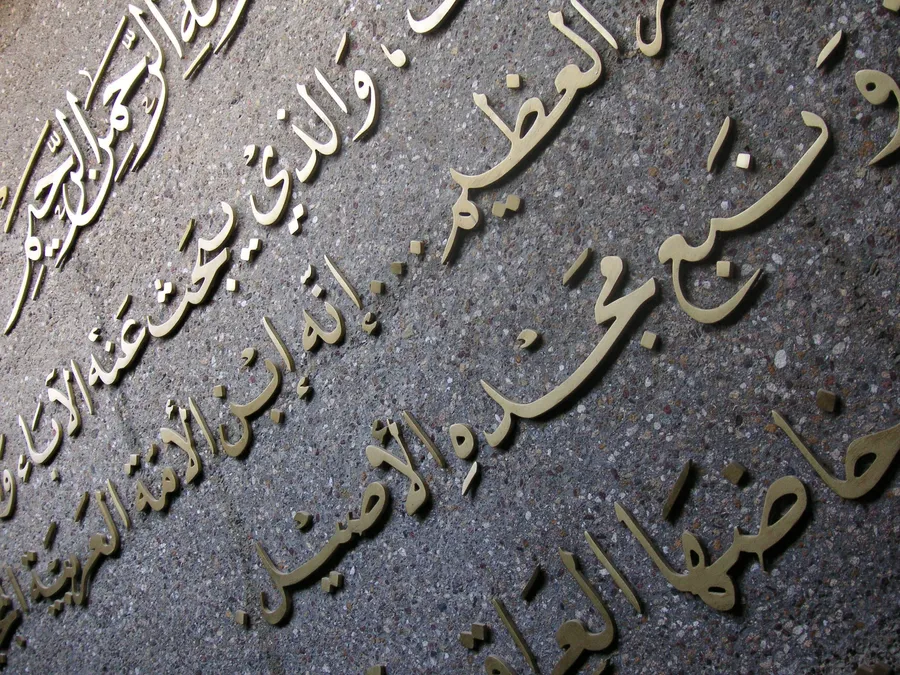 الرَّحْمنِ الرَّحِيمِ
وَالَّذِيْ يبحَث عَنْه الآبَاء
العَظِيم ... إنَّه ابْن الأمَّة العربيَّة
وَ نَبع مَجْدهِ الأصيْل.
العراق